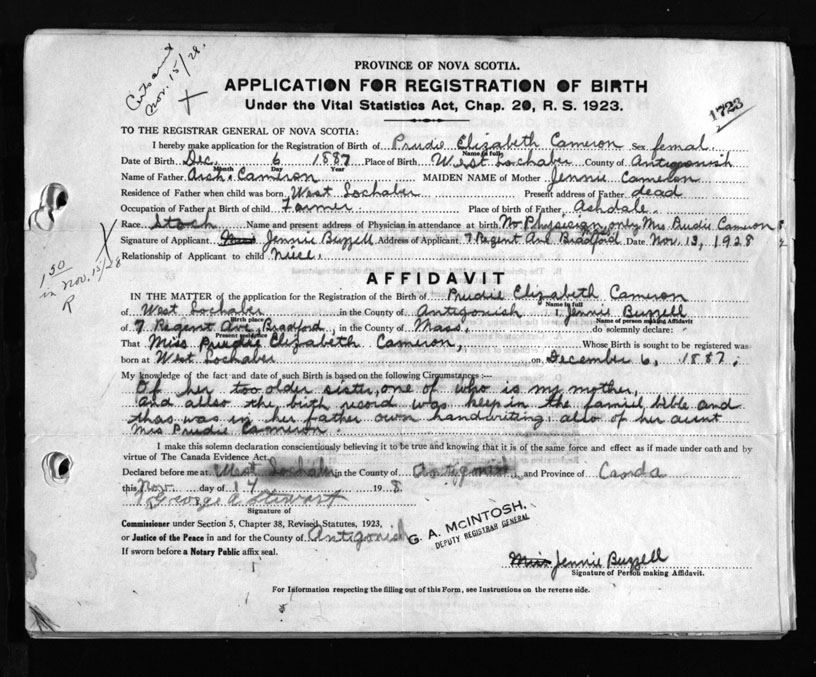 PROVINCE OF NOVA SCOTIA.
APPLICATION FOR REGISTRATION OF BIRTH
Under the Vital Statistics Act, Chap. 20, R. S. 1923.
Nov. 15/28.
1723
TO THE REGISTRAR GENERAL OF NOVA SCOTIA:
I hereby make application for the Registration of Birth of Prudie Elizabeth Cameron Sex femal.
Name in full
Date of Birth Dec. 6 1887 Place of Birth West Lochaber County of Antigonish
Month Day Year
Name of Father Arch. Cameron MAIDEN NAME of Mother Jennie Cameron
Residence of Father when child was born West Lochaber Present address of Father dead
Occupation of Father at Birth of child Farmer Place of birth of Father Ashdale.
Race Stoch Name and present address of Physician in attendance at birth No Physisign only Mrs Prudie Cameron
Signature of Applicant Miss Jennie Buzzell Address of Applicant 7 Regent Ave Bradford Date Nov. 13, 1928
Relationship of Applicant to child niece.
1 50
in Nov. 15/28
R
AFFIDAVIT
IN THE MATTER of the application for the Registration of the Birth of Prudie Elizabeth Cameron
Name in full
of West Lochaber in the County of Antigonish I, Jennie Buzzell
Birth place Name of person making Affidavit
of 7 Regent Ave, Bradford, in the County of Mass. do solemnly declare:
Present residence
That Miss Prudie Elizabeth Cameron, Whose Birth is sought to be registered was
born at West Lochaber on December 6, 1887;
My knowledge of the fact and date of such Birth is based on the following Circumstances :—
Of her too older sister, one of who is my mother,
and allso the birth record was keep in the famiel bible and
thas was in her father own handwriting: allso of her aunt
Mrs Prudie Cameron.
I make this solemn declaration conscientiously believing it to be true and knowing that it is of the same force and effect as if made under oath and by
virtue of The Canada Evidence Act.
Declared before me at West Lochaber in the County of Antigonish, and Province of Canda
this Nov day of 17 19 8
George A Stewart
Signature of
Commissioner under Section 5, Chapter 38, Revised Statutes, 1923,
or Justice of the Peace in and for the County of Antigonish
If sworn before a Notary Public affix seal.
G. A. McINTOSH,
DEPUTY REGISTRAR GENERAL
Miss Jennie Buzzell
Signature of Person making Affidavit.
For Information respecting the filling out of this Form, see Instructions on the reverse side.